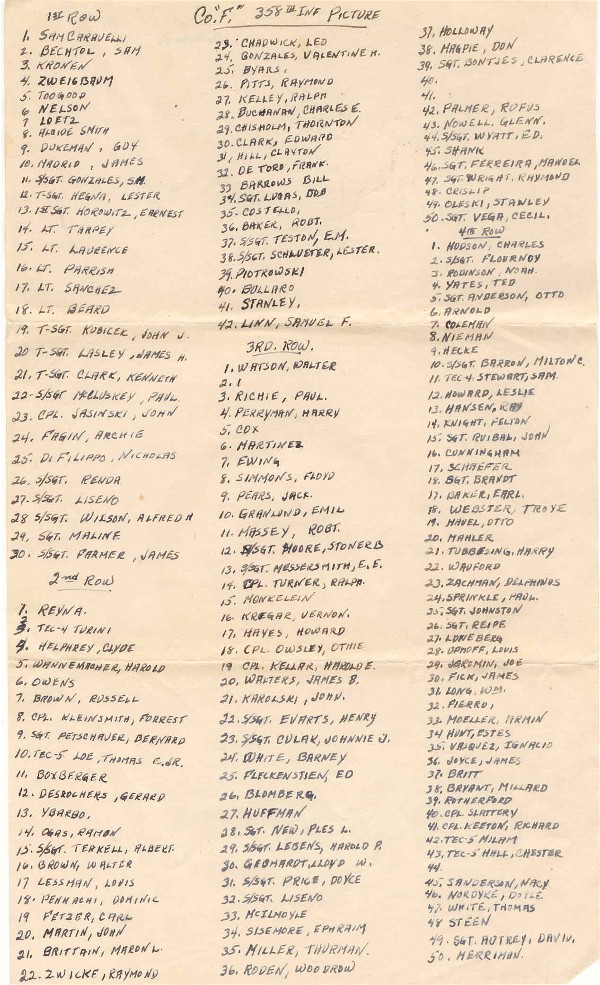 Co. "F." 358TH INF PICTURE
1ST ROW
1. SAM CARAVELLI
2. BECHTOL, SAM
3. KRONEN
4. ZWEIGBAUM
5. TOOGOOD
6 NELSON
7 LOETZ
8. ALOIDE SMITH
9. DUKEMAN, GUY
10. MADRID, JAMES
11. S/SGT. GONZALES, S.M.
12. T-SGT. HEGNA, LESTER
13. 1ST SGT. HOROWITZ, EARNEST
14. LT. TARPEY
15. LT. LAURENCE
16. LT. PARRISH
17. LT. SANCHEZ
18. LT. BEARD
19. T-SGT. KUBICEK, JOHN J.
20 T-SGT. LASLEY, JAMES H.
21. T-SGT. CLARK, KENNETH
22. S/SGT McCLUSKEY, PAUL.
23. CPL. JASINSKI, JOHN
24. FAGIN, ARCHIE
25. DI FILIPPO, NICHOLAS
26. S/SGT. RENDA
27. S/SGT. LISENO
28 S/SGT. WILSON, ALFRED H
29. SGT. MALINE
30. S/SGT. PARMER, JAMES
2nd ROW
1. REYNA.
3. TEC-4 TURINI
4. HELPHREY, CLYDE
5. WANNEMACHER, HAROLD
6. OWENS
7. BROWN, RUSSELL
8. CPL. KLEINSMITH, FORREST
9. SGT. PETSCHAUER, BERNARD
10. TEC-5 LOE, THOMAS E. JR.
11. BOXBERGER
12. DESROCHERS, GERARD
13. YBARBO,
14. OGAS, RAMON
15. S/SGT. TERKELL, ALBERT.
16. BROWN, WALTER
17 LESSMAN, LOUIS
18. PENNACHI, DOMINIC
19 FETZER, CARL
20. MARTIN, JOHN
21. BRITTAIN, MARON L.
22. ZWICKE, RAYMOND
23. CHADWICK, LEO
24. GONZALES, VALENTINE H.
25. BYARS,
26. PITTS, RAYMOND
27. KELLEY, RALPH
28. BUCHANAN, CHARLES E.
29. CHISHOLM, THORNTON
30. CLARK, EDWARD
31, HILL, CLAYTON
32. DE TORO, FRANK.
33 BARROWS BILL
34. SGT. LUCAS, BOB
35. COSTELLO,
36. BAKER, ROBT.
37. S/SGT. TESTON, E.M.
38. S/SGT. SCHLUETER, LESTER.
39. PIOTROWSKI
40. BULLARD
41. STANLEY,
42. LINN, SAMUEL F.
3RD. ROW.
1. WATSON, WALTER
2. 1
3. RICHIE, PAUL.
4. PERRYMAN, HARRY
5. COX
6. MARTINEZ
7. EWING
8. SIMMONS, FLOYD
9. PEARS, JACK.
10. GRANLUND, EMIL
11. MASSEY, ROBT.
12. S/SGT. MOORE, STONER B
13. S/SGT. MESSERSMITH, E.E.
14. CPL. TURNER, RALPH.
15. MONKELEIN
16. KREGAR, VERNON.
17. HAYES, HOWARD
18. CPL. OWSLEY, OTHIE
19 CPL. KELLAR, HAROLD E.
20. WALTERS, JAMES B.
21. KAROLSKI, JOHN.
22. S/SGT. EVARTS, HENRY
23. S/SGT. CULAK, JOHNNIE J.
24. WHITE, BARNEY
25. FLECKENSTIEN, ED
26. BLOMBERG.
27. HUFFMAN
28. SGT. NEW, PLES L.
29. S/SGT. LEBENS, HAROLD P.
30. GEBHARDT, LLOYD W.
31. S/SGT. PRICE, DOYCE
32. S/SGT. LISENO
33. MCILMOYLE
34. SISEMORE, EPHRAIM
35. MILLER, THURMAN.
36. RODEN, WOODROW
37. HOLLOWAY
38. MAGPIE, DON
39. SGT. BONTJES, CLARENCE
40.
41.
42. PALMER, RUFUS
43. NOWELL, GLENN.
44. S/SGT. WYATT, ED.
45. SHANK
46. SGT. FERREIRA, MANUEL
47. SGT. WRIGHT, RAYMOND
48. CRISLIP
49. OLESKI, STANLEY
50. SGT. VEGA, CECIL.
4TH ROW
1. HUDSON, CHARLES
2. S/SGT. FLOURNOY
3. ROBINSON, NOAH.
4. YATES, TED
5. SGT. ANDERSON, OTTO
6. ARNOLD
7. COLEMAN
8. NIEMAN
9. HECKE
10. S/SGT. BARRON, MILTON C.
11. TEC-4. STEWART, SAM.
12. HOWARD, LESLIE
13. HANSEN, RAY
14. KNIGHT, FELTON
15. SGT. RUIBAL, JOHN
16. CUNNINGHAM
17. SCHAEFER
18. SGT. BRANDT
17. BAKER, EARL.
18. WEBSTER, TROYE
19. HAVEL, OTTO
20. MAHLER
21. TUBBESING, HARRY
22. WADFORD
23. ZACHMAN, DELPHINUS
24. SPRINKLE, PAUL.
25. SGT. JOHNSTON
26. SGT. REIPE
27. LONEBERG
28. UPHOFF, LOUIS
29. JAROMIN, JOE
30. FICK, JAMES
31. LONG, WM.
32. FIERRO,
33. MOELLER, ARMIN
34 HUNT, ESTES
35. VASQUEZ, IGNACIO
36. JOYCE, JAMES
37. BRITT
38. BRYANT, MILLARD
39. ROTHERFORD
40. CPL SLATTERY
41. CPL. KEETON, RICHARD
42. TEC-5 MILAM
43, TEC-5 HALL, CHESTER
44.
45. SANDERSON, NACY
46. NORDYKE, DOYLE
47. WHITE, THOMAS
48 STEEN
49. SGT. AUTREY, DAVID.
50. MERRIMAN.